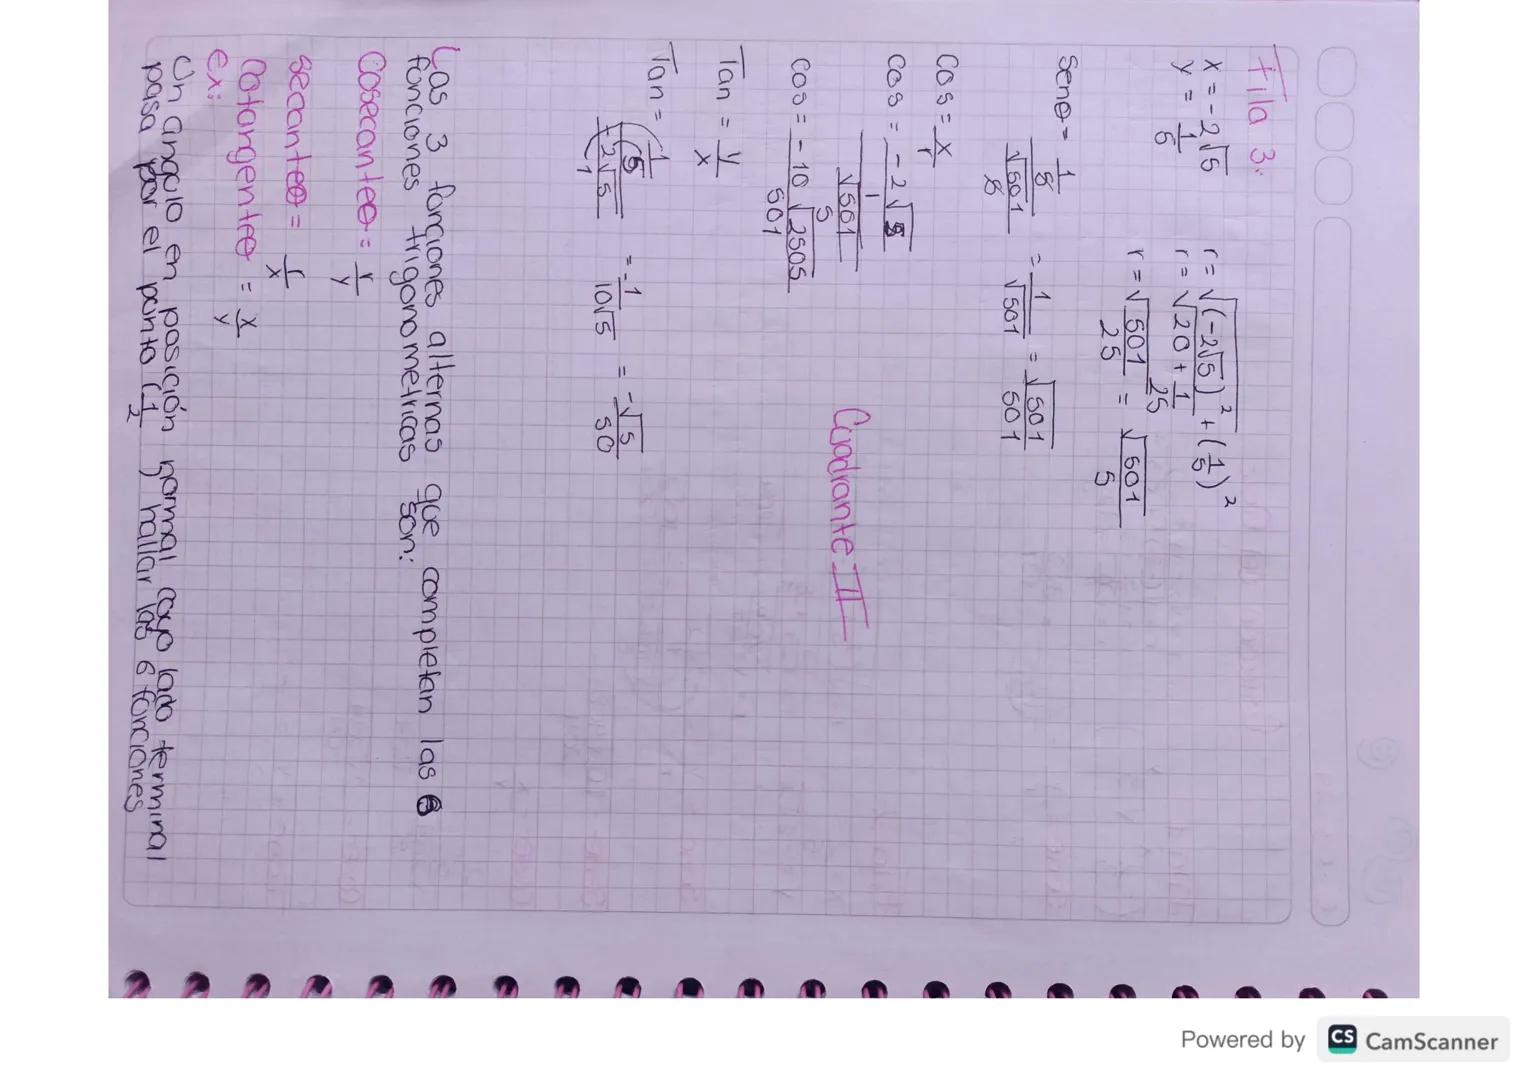 Fila 3:
x = -2√5
y = 1/5
r = √(-2√5)² + (1/5)²
r = √20 + 1/25
r = √501/25 = √501/5
Senθ = 1/5 / √501/5 = 1/√501 = √501/501
Cos = x/r
Cos = -2√5/1 / √501/5
Cuadrante II
Cos = -10√2505/501
Tan = y/x
Tan = 1/5 / -2√5/1 = -1/10√5 = -√5/50
Las 3 funciones alternas que completan las 6
funciones trigonometricas son:
Cosecanteθ = r/y
Secanteθ = r/x
Cotangenteθ = x/y
ex:
Un angulo en posición normal cuyo lado terminal
pasa por el punto (1/2 ) hallar las 6 funciones
Powered by CS CamScanner